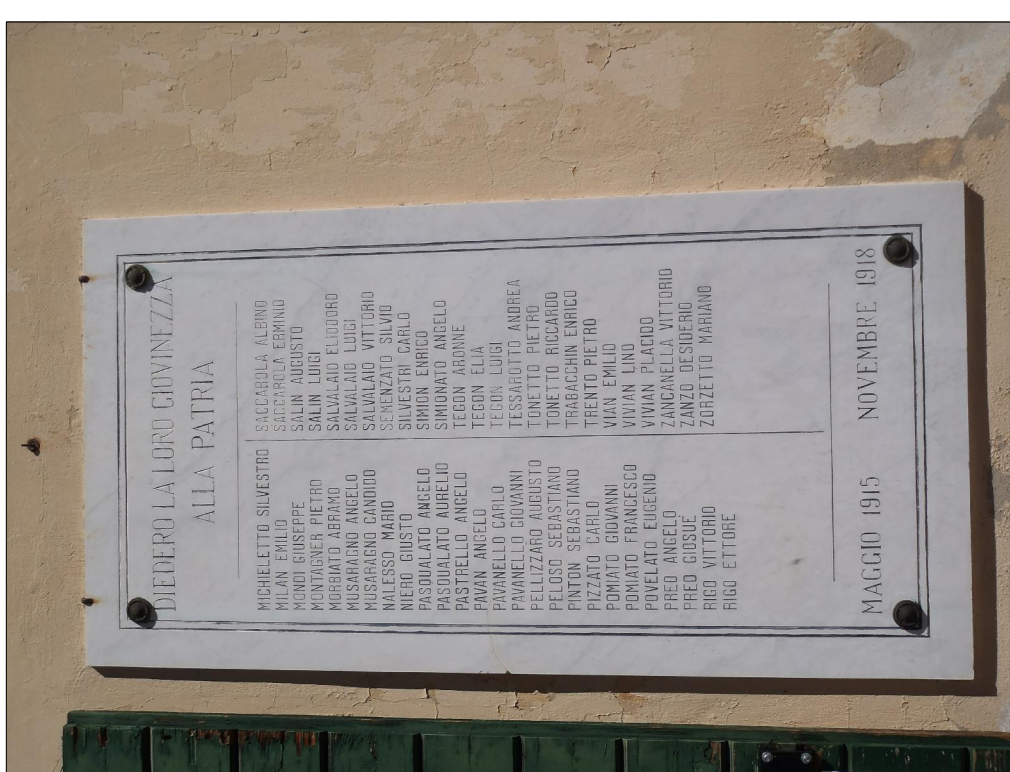 DIEDERO LA LORO GIOVINEZZA
ALLA PATRIA
MICHIELETTO SILVESTRO
MILAN EMILIO
MONDI GIUSEPPE
MONTAGNER PIETRO
MORBIATO ABRAMO
MUSARAGNO ANGELO
MUSARAGNO CANDIDO
NALESSO MARIO
NIERO GIUSTO
PASQUALATO ANGELO
PASQUALATO AURELIO
PASTRELLO ANGELO
PAVAN ANGELO
PAVANELLO CARLO
PAVANELLO GIOVANNI
PELLIZZARO AUGUSTO
PELOSO SEBASTIANO
PINTON SEBASTIANO
PIZZATO CARLO
POMIATO GIOVANNI
POMIATO FRANCESCO
POVELATO EUGENIO
PREO ANGELO
PREO GIOSUE
RIGO VITTORIO
RIGO ETTORE
SACCAROLA ALBINO
SACCAROLA ERMINIO
SALIN AUGUSTO
SALIN LUIGI
SALVALAIO ELIODORO
SALVALAIO LUIGI
SALVALAIO VITTORIO
SEMENZATO SILVIO
SILVESTRI CARLO
SIMION ENRICO
SIMIONATO ANGELO
TEGON ARONNE
TEGON ELIA
TEGON LUIGI
TESSAROTTO ANDREA
TONETTO PIETRO
TONETTO RICCARDO
TRABACCHIN ENRICO
TRENTO PIETRO
VIAN EMILIO
VIVIAN LINO
VIVIAN PLACIDO
ZANCANELLA VITTORIO
ZANZO DESIDERIO
ZORZETTO MARIANO
MAGGIO 1915 NOVEMBRE 1918